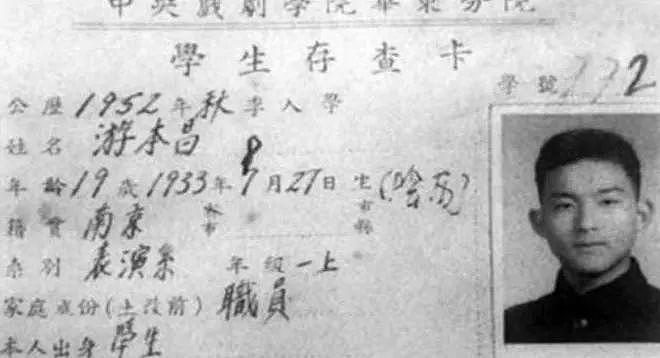 中央戲劇學院華東分院
學生存查卡
學號 2
公歷1952年秋季入學
姓名 游本昌
年齡19歲1933年8月27日生
籍貫 南京 市 市縣
系別 表演系 年級一上
家庭成份(土改前) 職員
本人出身 學生